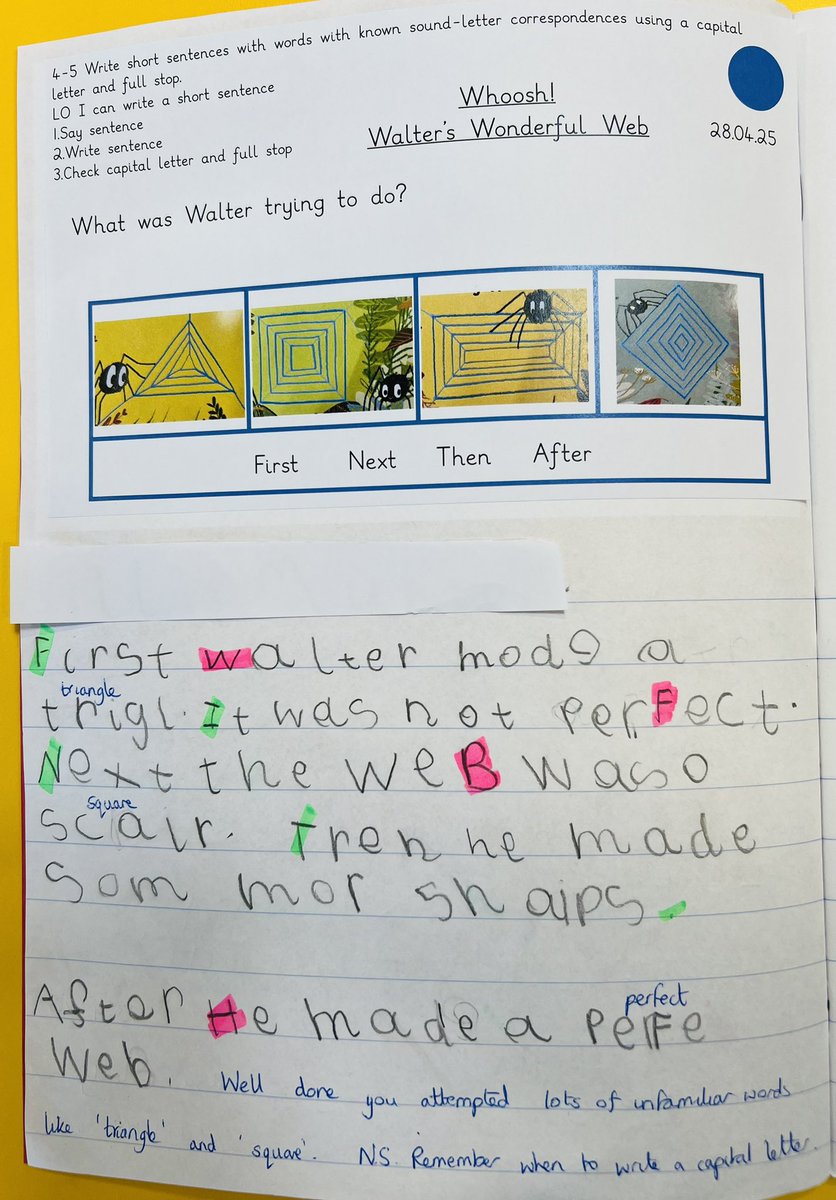 4-5 Write short sentences with words with known sound-letter correspondences using a capital
letter and full stop.
LO I can write a short sentence
1.Say sentence
2.Write sentence
3.Check capital letter and full stop
Whoosh!
Walter's Wonderful Web
28.04.25
What was Walter trying to do?
First Next Then After
First walter made a
triangle
trigl. It was not perFect.
Next the weB was o
square
scair. Then he made
som mor shaips.
After He made a perFe
perfect
web.
Well done you attempted lots of unfamiliar words
like 'triangle' and 'square'. N.S. Remember when to write a capital letter.